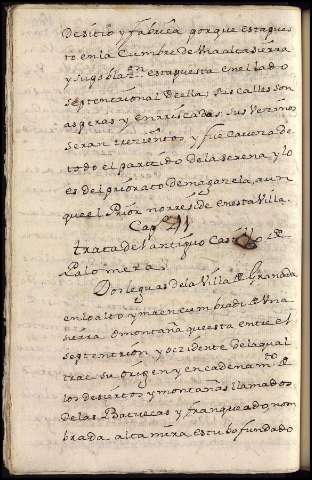 de sitio y fabrica porque esta pues
to en la Cumbre de Vna alta sierra
y su poblaz.on esta puesta en el lado
septentrional de ella, sus calles son
asperas y enrriscadas, sus Vezinos
seran trezientos y fue Caveza de
todo el partido de la serena, y lo
es del priorato de magazela, aun
que el Prior no rreside en esta Villa.
Cap.o 41
trata del antiguo Castillo de
Palomera
Dos leguas de la Villa de Granada
en lo alto y mas encumbrado de Vna
sierra o montaña questa entre el
septentrion y oczidente de la qual
trae su origen y encadenam.to de
los desiertos y montañas llamados
de las Batuecas y franqueado nom
brada altamira estubo fundado